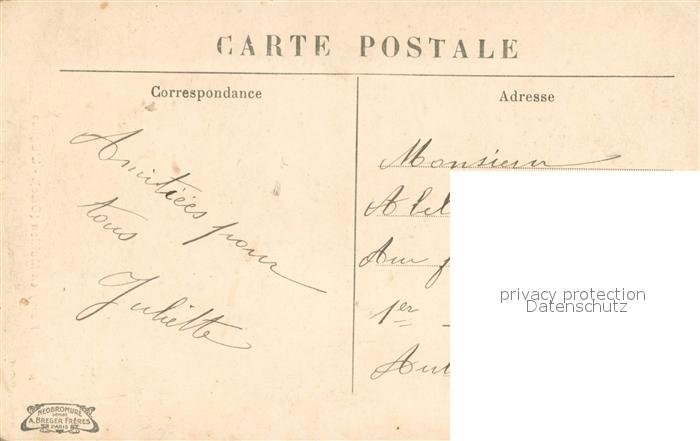 CARTE POSTALE
Correspondance
Adresse
Amitiées pour
tous
Juliette
Monsieur
1er
privacy protection
Datenschutz
NEOBROMURE
A. BREGER FRÈRES
PARIS